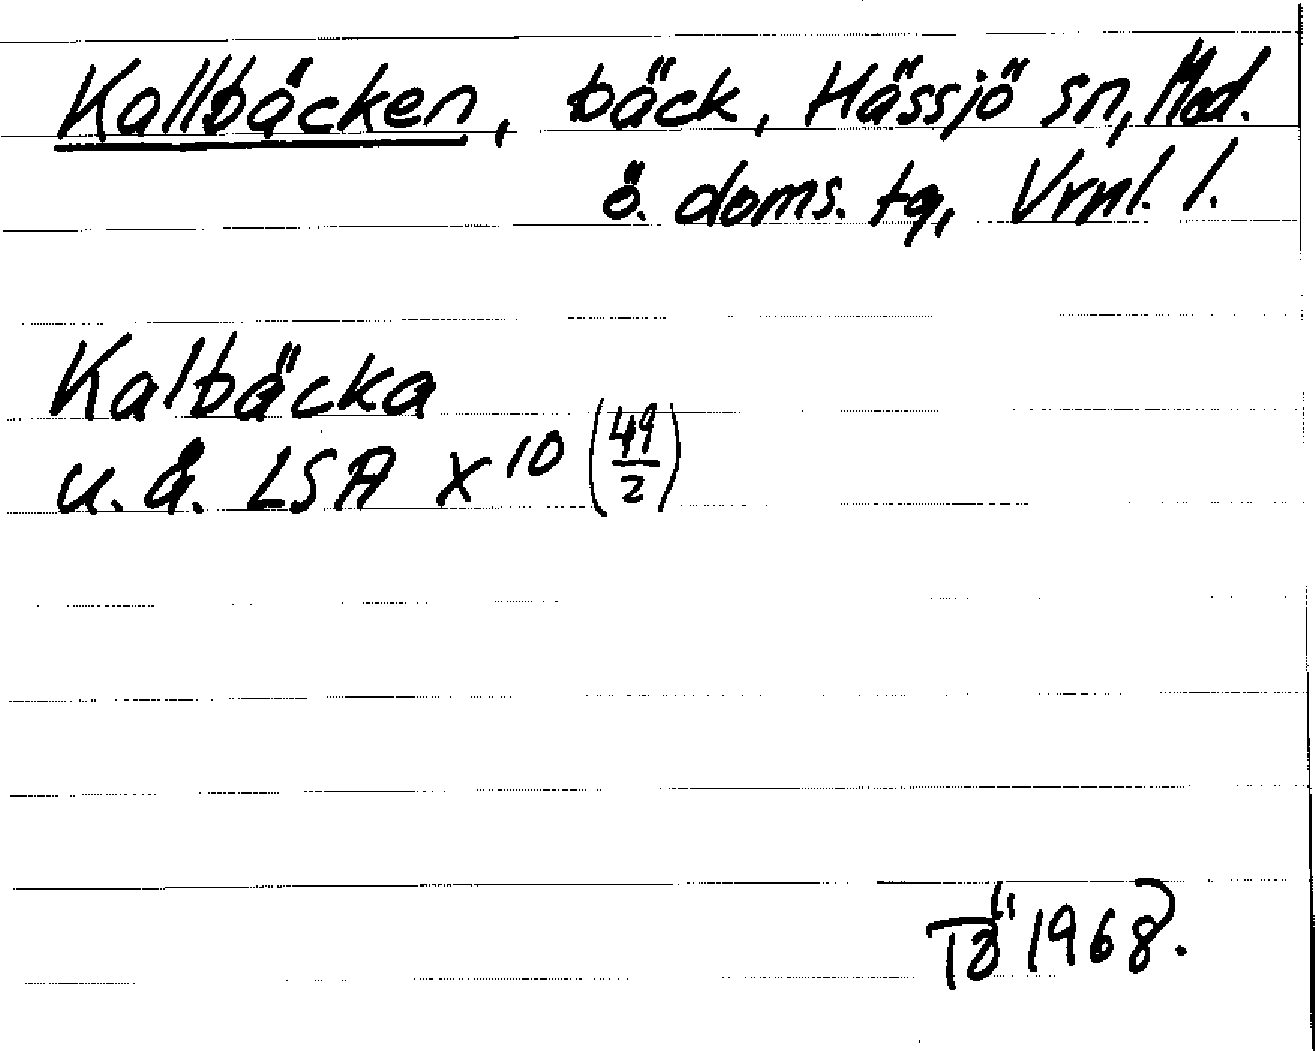 Kallbäcken, bäck, Hässjö sn, Med.
ö. doms. tg, Vrnl. l.
Kalbäcka
u. å. LSA X 10 (49/2)
TÖ 1968.